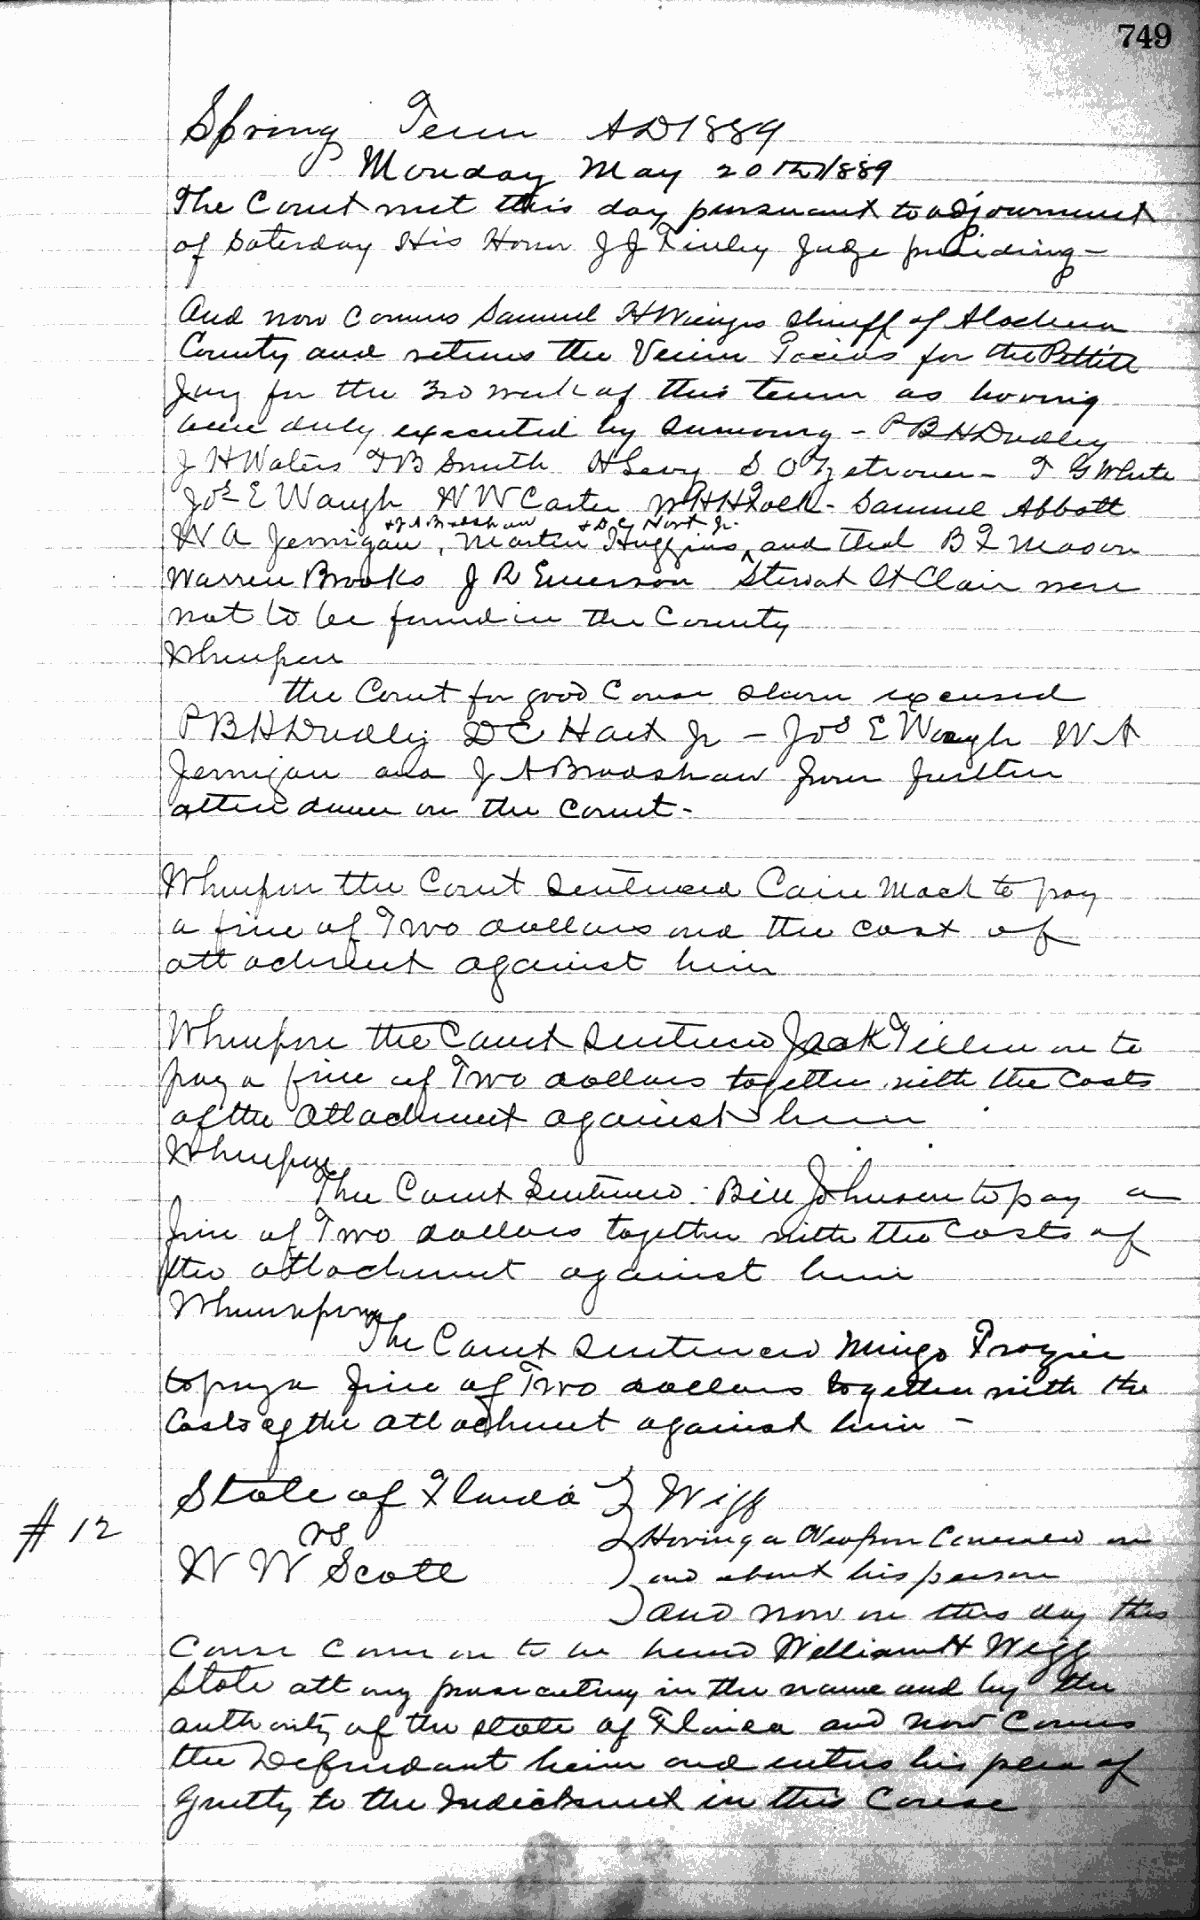 749
Spring Term AD 1889
Monday May 20th 1889
The Court met this day pursuant to adjournment
of Saterday His Honor J J Finley Judge presiding -
And now comes Samuel H Wienges Sheriff of Alachua
County and returns the Venire Facias for the Pettit
Jury for the 3rd week of this term as having
been duly executed by sumoning - P B H Dudley
J H Waters F B Smith H Levy S O Zetrouer - T G White
Jos E Waugh W W Carter W H H - Samuel Abbott
+ J A Bradshaw + D C Hart Jr.
W A Jernigan, Martin Huggins, and that B F Mason
Warren Brooks J R Emerson Stewart St Clair were
not to be found in the County
Whereupon
the Court for good Cause shown excused
P B H Dudley D C Hart Jr - Jos E Waugh W A
Jernigan and J A Bradshaw from further
attendance on the Court -
Whereupon the Court sentenced Cain Mack to pay
a fine of Two dollars and the cost of
attachment against him
Whereupon the Court sentenced Jack on to
pay a fine of Two dollars together with the Costs
of the attachment against him
Whereupon
The Court Sentenced Bill Johnson to pay a
fine of Two dollars together with the Costs of
the attachment against him
Whereupon
The Court sentenced Mingo Frazier
to pay a fine of Two dollars together with the
Costs of the attachment against him -
State of Florida } Wigg
# 12 vs } Having a Weapon Concealed on
W W Scott } and about his person
} and now on this day this
Cause Came on to be heard William H Wigg
State attorney prosecuting in the name and by the
authority of the State of Florida and now Comes
the Defendant him and enters his plea of
Guilty to the Indictment in this Cause